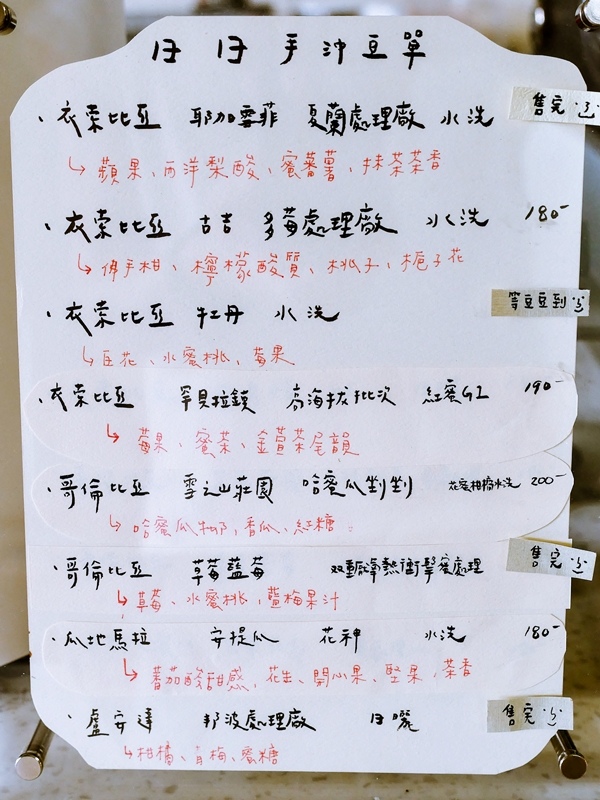 日日手沖豆單
・衣索比亞 耶加雪菲 夏蘭處理廠 水洗 售完
↳蘋果、西洋梨酸、蜜蕃薯、抹茶茶香
・衣索比亞 古吉 多莓處理廠 水洗 180-
↳佛手柑、檸檬酸質、桃子、梔子花
・衣索比亞 牡丹 水洗 等豆豆到
↳白花、水蜜桃、莓果
・衣索比亞 罕貝拉鎮 高海拔批次 紅蜜G1 190-
↳莓果、蜜茶、金萱茶尾韻
・哥倫比亞 雪之山莊園 哈蜜瓜剉剉 花蜜柑橘水洗 200-
↳哈蜜瓜牛奶、香瓜、紅糖
・哥倫比亞 草莓藍莓 双重厭氧熱衝擊蜜處理 售完
↳草莓、水蜜桃、藍莓果汁
・瓜地馬拉 安提瓜 花神 水洗 180-
↳蕃茄酸甜感、花生、開心果、堅果、茶香
・盧安達 邦波處理廠 日曬 售完
↳柑橘、青梅、蜜糖